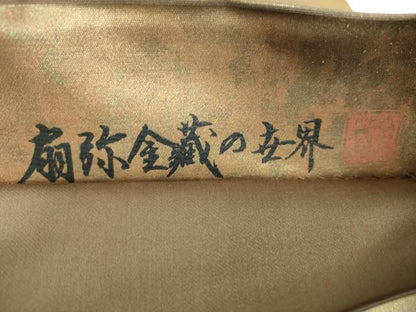 扇弥金藏の世界